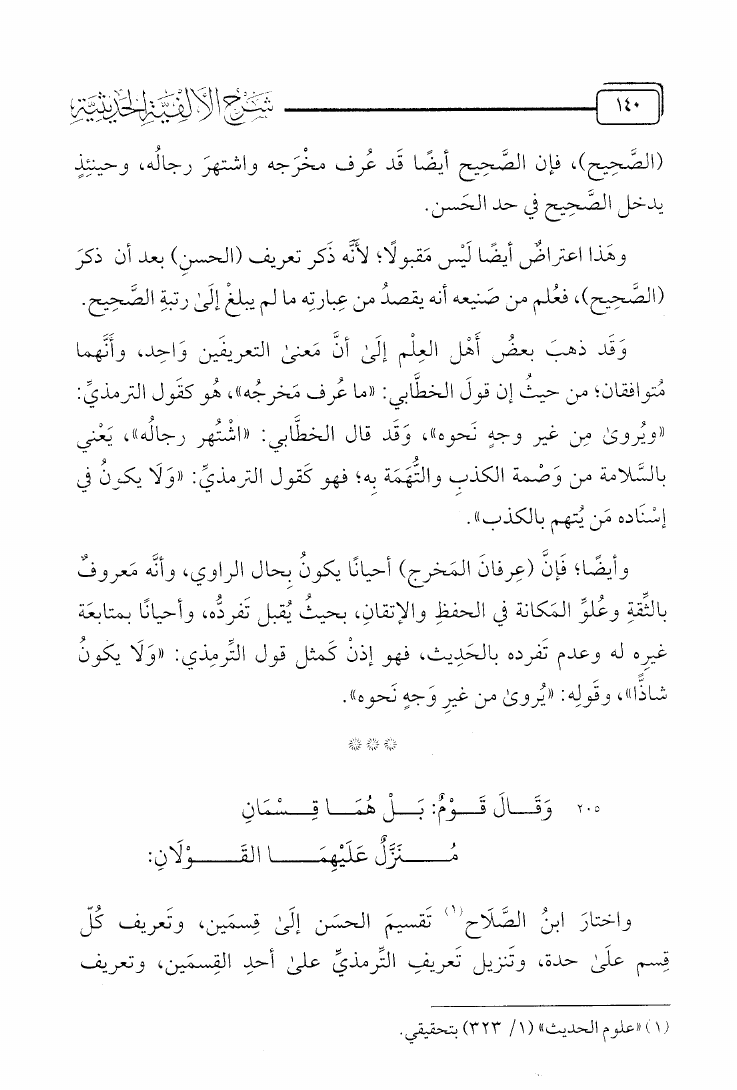 ١٤٠
شرح الألفية الحديثية
(الصَّحِيح)، فإن الصَّحِيح أيضًا قَد عُرف مخْرَجه واشتهرَ رجالُه، وحينئِذٍ
يدخل الصَّحِيح في حد الحَسن.
وهَذا اعتراضٌ أيضًا لَيْس مَقبولًا؛ لأنَّه ذَكر تعريف (الحسنِ) بعد أن ذكرَ
(الصَّحِيح)، فعُلم من صَنيعه أنه يقصدُ من عِبارتِه ما لم يبلغْ إلَىٰ رتبةِ الصَّحِيح.
وَقَد ذهبَ بعضُ أَهْل العِلْم إلَىٰ أنَّ مَعنىٰ التعريفَين وَاحِد، وأنَّهما
مُتوافقان؛ من حيثُ إن قولَ الخطَّابي: «ما عُرف مَخرجُه»، هُو كقَول الترمذيِّ:
«ويُروىٰ مِن غير وجهٍ نَحوه»، وَقَد قال الخطَّابي: «اشْتُهر رجالُه»، يَعْني
بالسَّلامة من وَصْمة الكذبِ والتُّهَمَة بِه؛ فهو كَقول الترمذيِّ: «وَلَا يكونُ في
إسْنَاده مَن يُتهم بالكذب».
وأيضًا؛ فإنَّ (عِرفانَ المَخرج) أحيانًا يكونُ بِحال الراوي، وأنَّه مَعروفٌ
بالثِّقةِ وعُلوِّ المَكانة في الحفظِ والإتقانِ، بحيثُ يُقبل تَفردُّه، وأحيانًا بمتابعَة
غيرِه له وعدم تَفرده بالحَدِيث، فهو إذنْ كَمثل قول التِّرمذي: «وَلَا يكونُ
شاذًّا»، وقَولِه: «يُروىٰ من غيرِ وَجهٍ نَحوه».
٢٠٥ وَقَـالَ قَـوْمٌ: بَـلْ هُمَـا قِـسْمَانِ
مُـنَزَّلٌ عَلَيْهِمَـا القَـوْلَانِ:
واختارَ ابنُ الصَّلَاح(١) تَقسيمَ الحسَن إلَىٰ قِسمَين، وتَعريف كُلّ
قِسم علَىٰ حدة، وتَنزيل تَعريفِ التِّرمذيِّ علىٰ أحدِ القِسمَين، وتعريف
(١) «علوم الحديث» (١/ ٣٢٣) بتحقيقي.